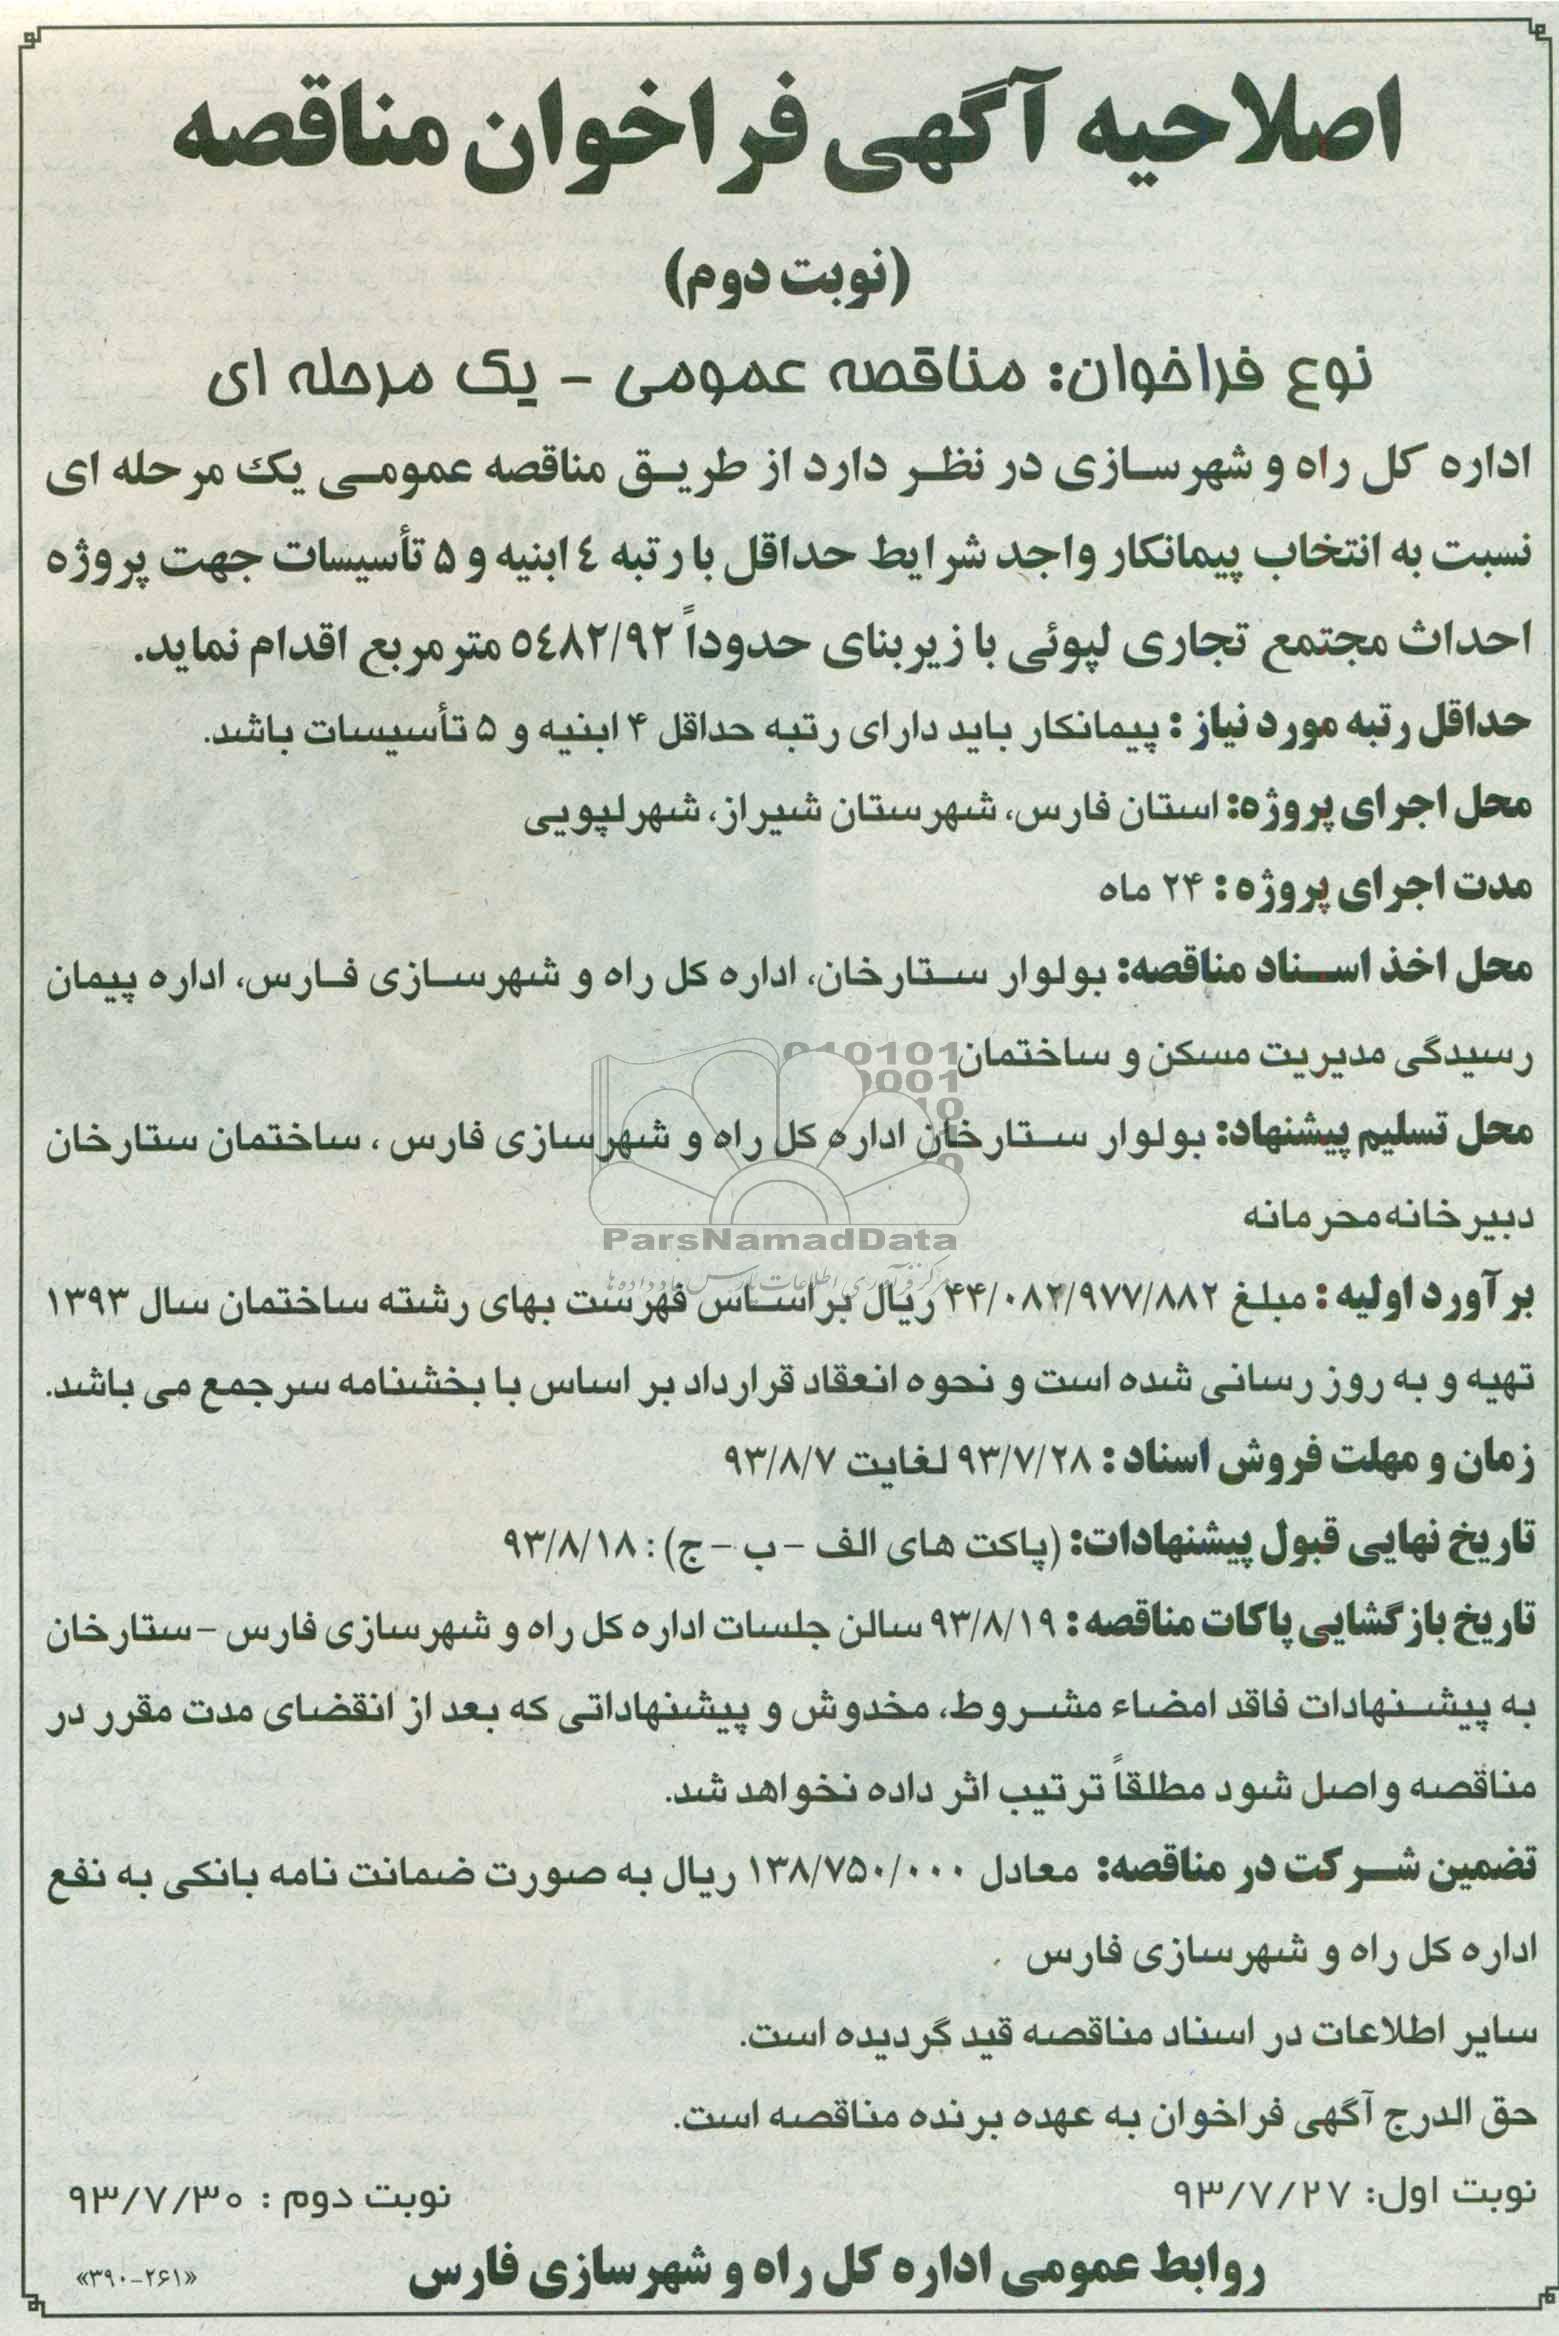 اصلاحیه آگهی فراخوان مناقصه
(نوبت دوم)
نوع فراخوان: مناقصه عمومی - یک مرحله ای
اداره کل راه و شهرسازی در نظر دارد از طریق مناقصه عمومی یک مرحله ای
نسبت به انتخاب پیمانکار واجد شرایط حداقل با رتبه ٤ ابنیه و ۵ تأسیسات جهت پروژه
احداث مجتمع تجاری لپوئی با زیربنای حدوداً ٥٤٨٢/٩٢ مترمربع اقدام نماید.
حداقل رتبه مورد نیاز : پیمانکار باید دارای رتبه حداقل ۴ ابنیه و ۵ تأسیسات باشد.
محل اجرای پروژه: استان فارس، شهرستان شیراز، شهر لپویی
مدت اجرای پروژه : ۲۴ ماه
محل اخذ اسناد مناقصه: بولوار ستارخان، اداره کل راه و شهرسازی فارس، اداره پیمان
رسیدگی مدیریت مسکن و ساختمان
010101
0001
10
0
محل تسلیم پیشنهاد: بولوار ستارخان اداره کل راه و شهرسازی فارس ، ساختمان ستارخان
دبیرخانه محرمانه
ParsNamadData
مرکز فرآوری اطلاعات پارس نماد داده ها
برآورد اولیه : مبلغ ۴۴/۰۸۲/۹۷۷/۸۸۲ ریال براساس فهرست بهای رشته ساختمان سال ۱۳۹۳
تهیه و به روز رسانی شده است و نحوه انعقاد قرارداد بر اساس با بخشنامه سرجمع می باشد.
زمان و مهلت فروش اسناد : ۹۳/۷/۲۸ لغایت ۹۳/۸/۷
تاریخ نهایی قبول پیشنهادات: (پاکت های الف - ب - ج) : ۹۳/۸/۱۸
تاریخ بازگشایی پاکات مناقصه : ۹۳/۸/۱۹ سالن جلسات اداره کل راه و شهرسازی فارس - ستارخان
به پیشنهادات فاقد امضاء مشروط، مخدوش و پیشنهاداتی که بعد از انقضای مدت مقرر در
مناقصه واصل شود مطلقاً ترتیب اثر داده نخواهد شد.
تضمین شرکت در مناقصه: معادل ۱۳۸/۷۵۰/۰۰۰ ریال به صورت ضمانت نامه بانکی به نفع
اداره کل راه و شهرسازی فارس
سایر اطلاعات در اسناد مناقصه قید گردیده است.
حق الدرج آگهی فراخوان به عهده برنده مناقصه است.
نوبت اول: ۹۳/۷/۲۷ نوبت دوم : ۹۳/۷/۳۰
روابط عمومی اداره کل راه و شهرسازی فارس
«۳۹۰-۲۶۱»